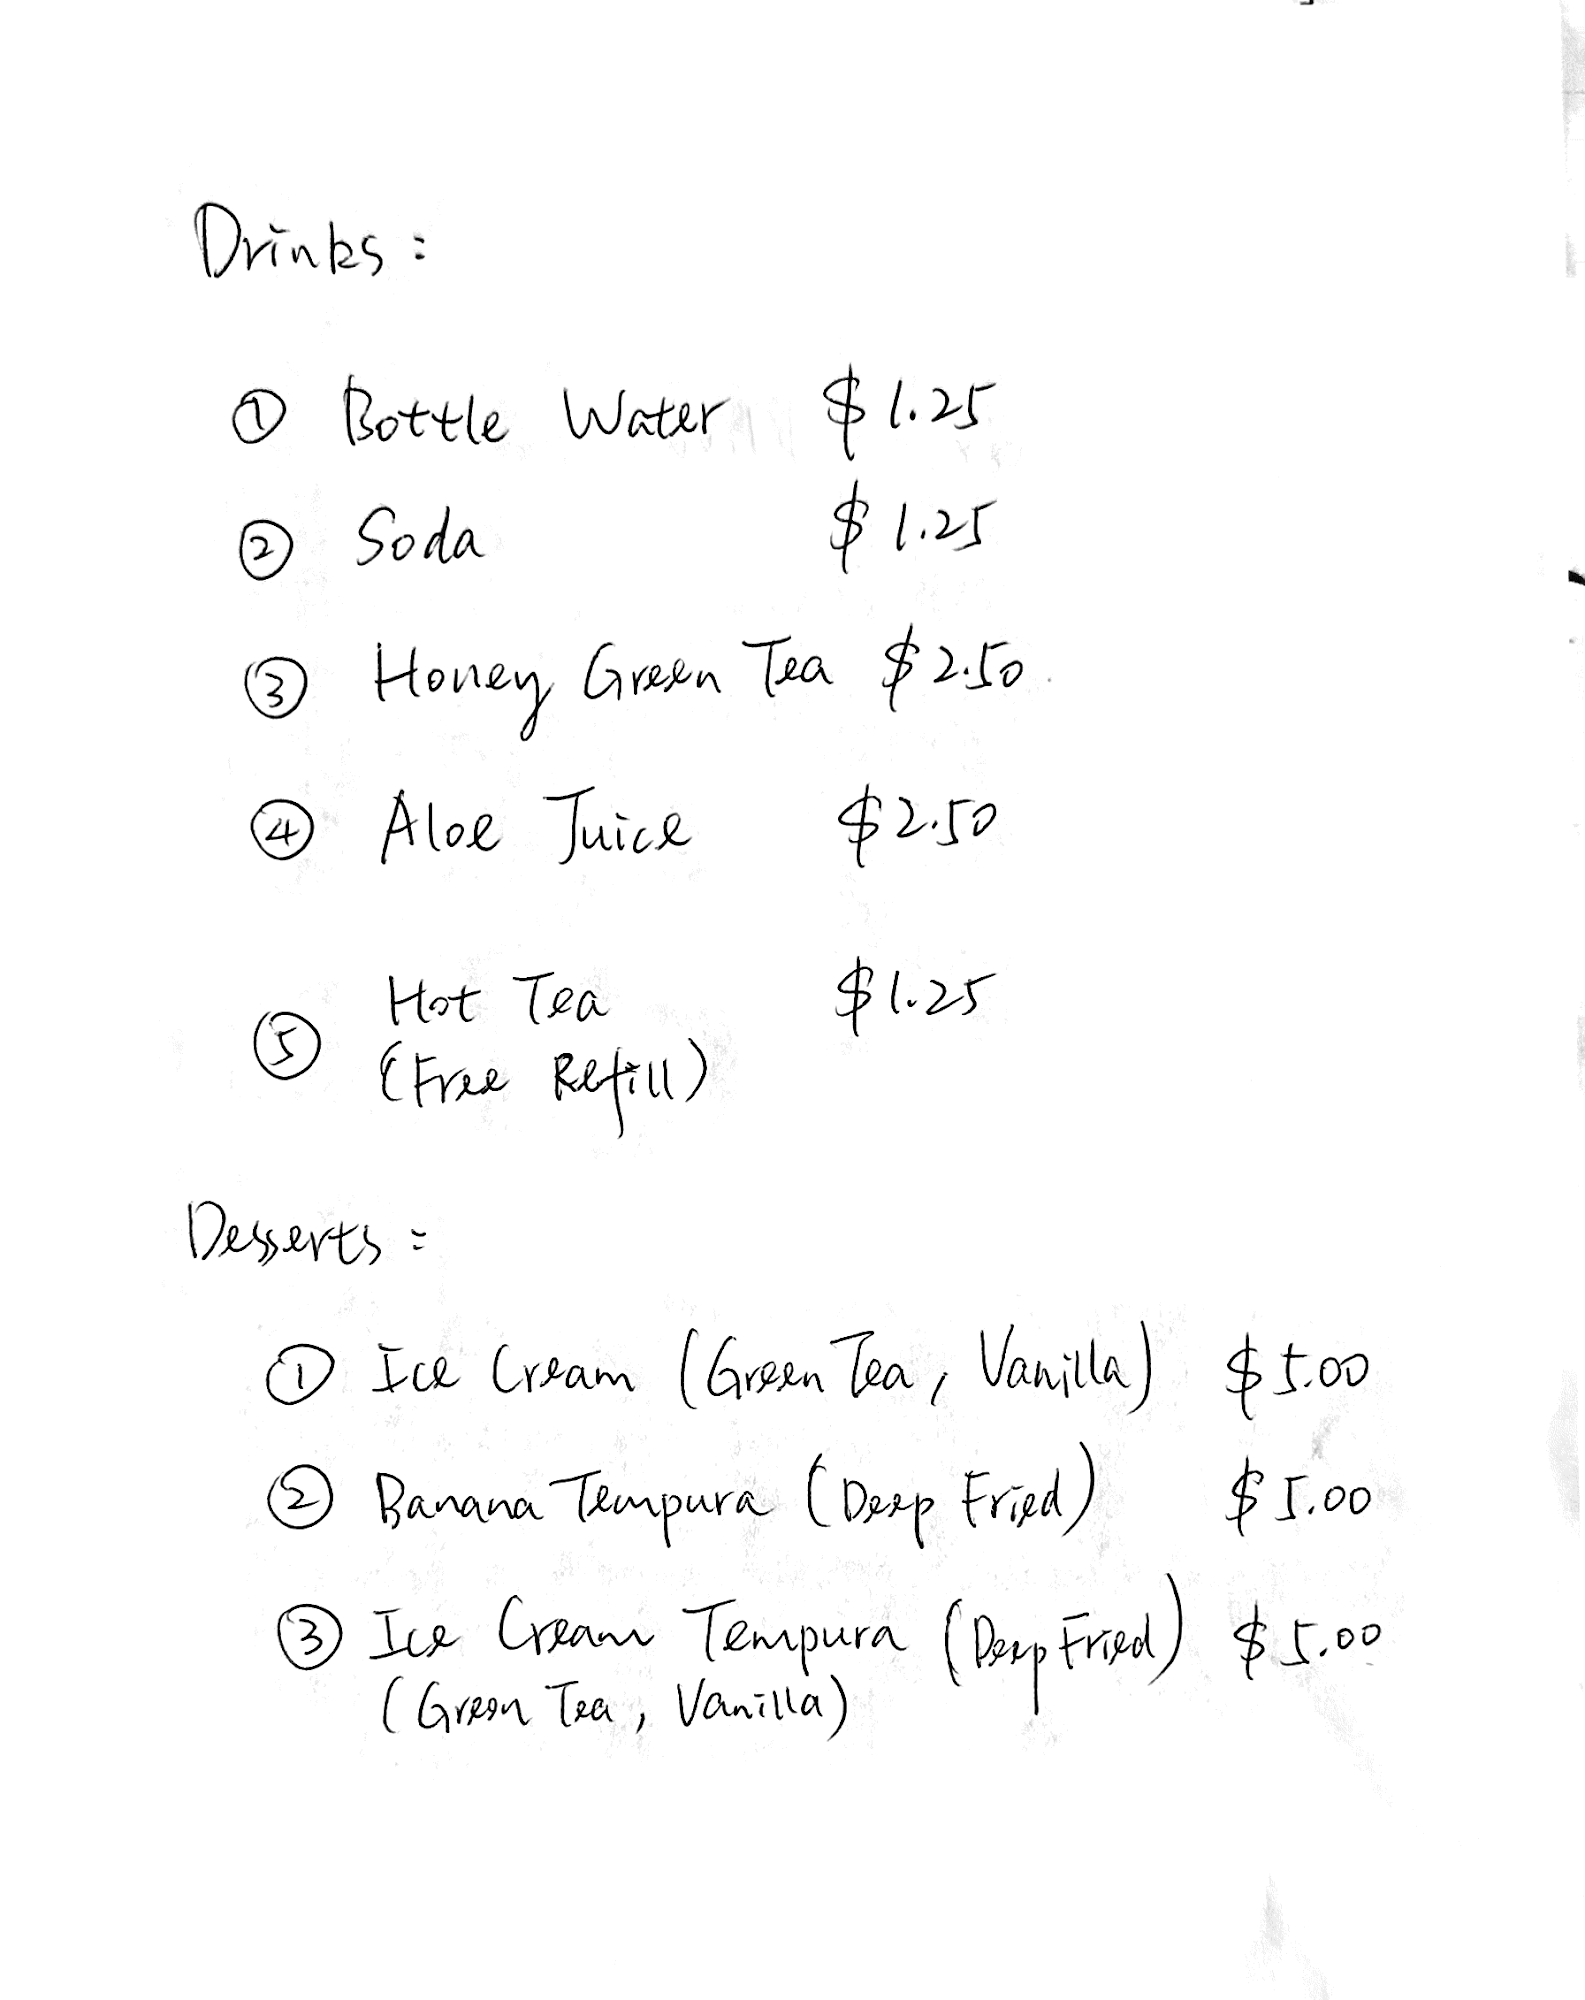 Drinks:
① Bottle Water $1.25
② Soda $1.25
③ Honey Green Tea $2.50
④ Aloe Juice $2.50
⑤ Hot Tea $1.25
(Free Refill)
Desserts:
① Ice Cream (Green Tea, Vanilla) $5.00
② Banana Tempura (Deep Fried) $5.00
③ Ice Cream Tempura (Deep Fried) $5.00
(Green Tea, Vanilla)